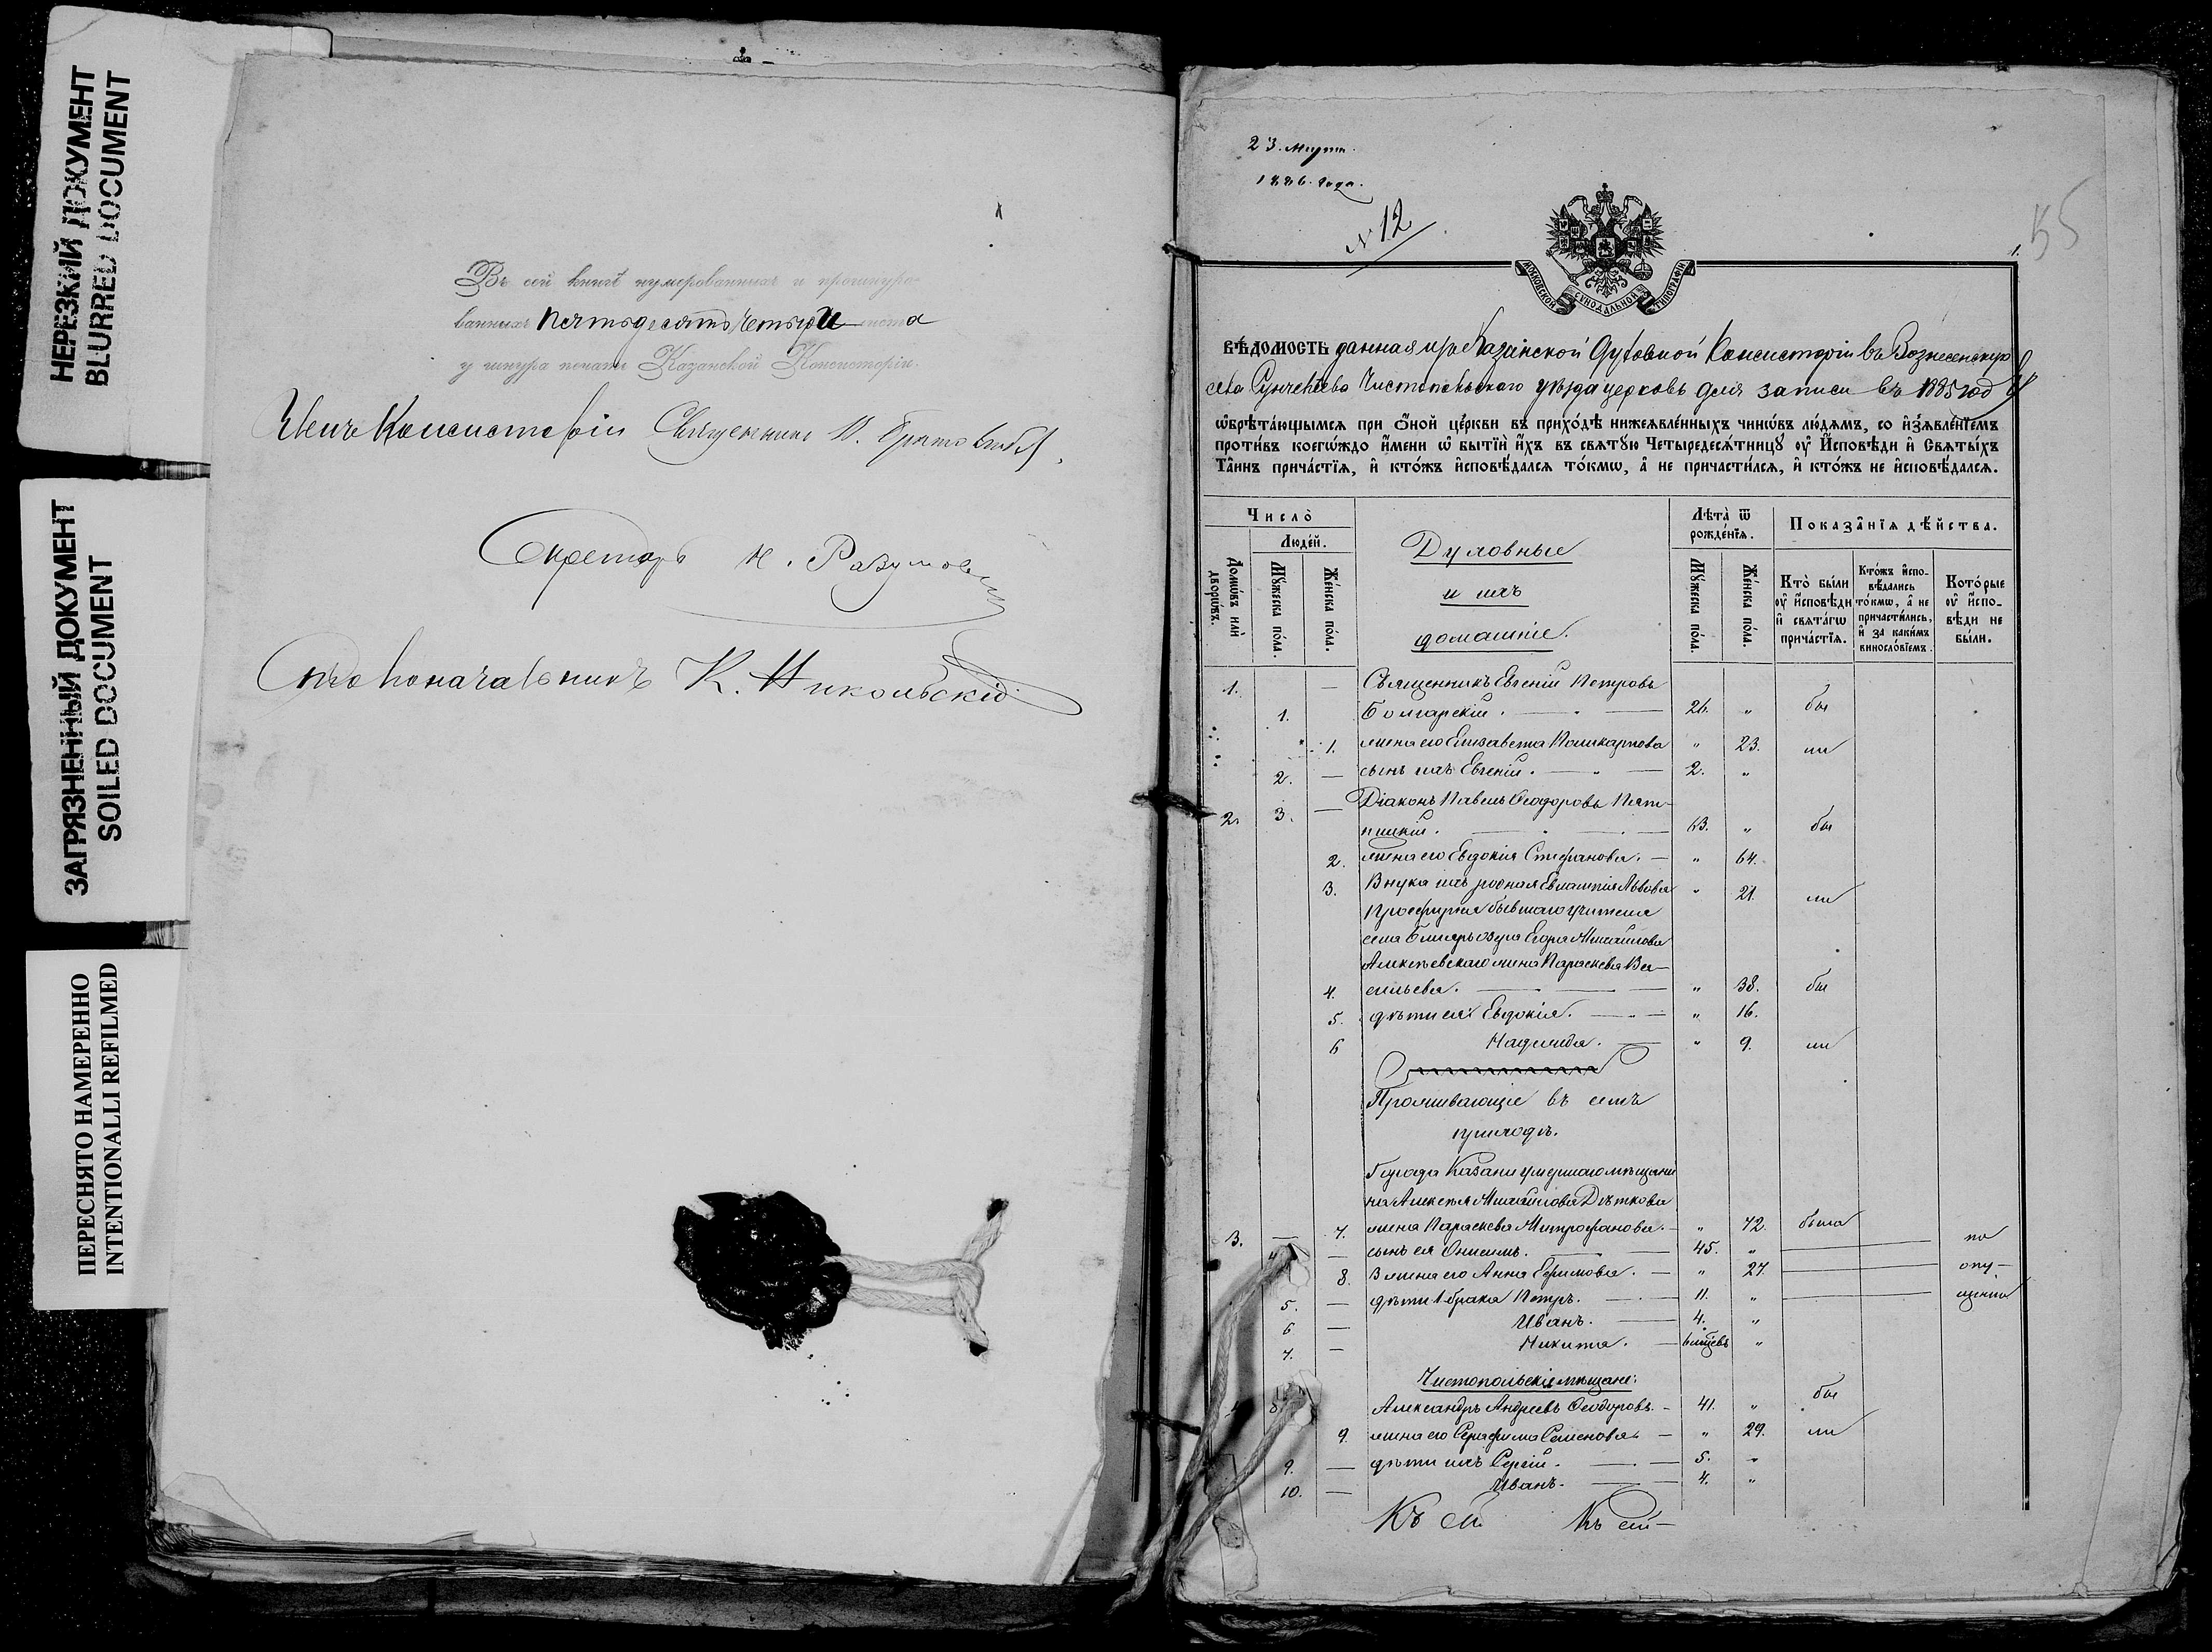 НЕРЕЗКИЙ ДОКУМЕНТ
BLURRED DOCUMENT
ЗАГРЯЗНЕННЫЙ ДОКУМЕНТ
SOILED DOCUMENT
ПЕРЕСНЯТО НАМЕРЕННО
INTENTIONALLI REFILMED
Въ сей книгѣ нумерованныхъ и прошнуро-
ванныхъ пятьдесятъ четыре листа
у шнура печать Казанской Консисторіи.
Членъ Консисторіи Священникъ
Секретарь Н. Разумов
Столоначальникъ К. Никольскій
23. Марта.
1886. года.
№ 12
55
1.
МОСКОВСКОЙ СѴНОДАЛЬНОЙ ТИПОГРАФІИ
ВѢДОМОСТЬ данная изъ Казанской Духовной Консисторіи въ Вознесенскую
села Сунчелѣева Чистопольскаго уѣзда церковь для записи въ 1885 год
ѡ҆брѣта́ющымсѧ при ѻ҆́ной це́ркви въ прихо́дѣ нижеѧвле́нныхъ чинѡ́въ лю́дѧмъ, со и҆з̾ѧвле́нїемъ
проти́въ коегѡ́ждо и҆́мени ѡ҆ бытїѝ и҆́хъ въ свѧтꙋ́ю Четыредесѧ́тницꙋ ᲂу҆ И҆сповѣ́ди и҆ Свѧты́хъ
Та̑инъ прича́стїѧ, и҆ кто́жъ и҆сповѣ́далсѧ то́кмѡ, а҆ не причасти́лсѧ, и҆ кто́жъ не и҆сповѣ́далсѧ.
Число̀
Лѣ́та ѿ рожде́нїѧ.
Показа̑нїѧ дѣ́йства.
Люде́й.
Домѡ́въ и҆лѝ дворѡ́въ.
Мꙋ́жеска по́ла.
Же́нска по́ла.
Духовные
и ихъ
домашніе.
Мꙋ́жеска по́ла.
Же́нска по́ла.
Кто̀ бы́ли ᲂу҆ и҆сповѣ́ди и҆ свѧта́гѡ прича́стїѧ.
Кто́жъ и҆сповѣ́дались то́кмѡ, а҆ не причасти́лись, и҆ за каки́мъ виносло́вїемъ.
Кото́рые ᲂу҆ и҆сповѣ́ди не бы́ли.
1. — Священникъ Евгеній Петровъ
1. Болгарскій. — 26. „ бы
1. жена его Елизавета Поликарпова „ 23. ли
2. — сынъ ихъ Евгеній. — 2. „
2. 3. — Діаконъ Павелъ Ѳеодоровъ Пят-
ницкій. — 63. „ бы
2. жена его Евдокія Стефанова. — „ 64.
3. Внука ихъ родная Евлампія Львова „ 21. ли
Просфирня бывшаго учителя
села Егора Михайлова
Алексѣевскаго жена Параскева Ва-
4. сильева. — „ 38. бы
5. дѣти ея: Евдокія. — „ 16.
6 Надежда. — „ 9. ли
Проживающіе въ семъ
приходѣ.
Города Казани умершаго мѣщани
на Алексѣя Михайлова Дѣткова
3. — 7. жена Параскева Митрофанова. — „ 72. была
4 — сынъ ея Онисимъ. — 45. „ — по
8. 3 жена его Анна Ефимова. — „ 27. — опу-
5. — дѣти 1 брака Петръ. — 11. „ — щенію
6 — Иванъ. — 4. „
7. — Никита. — 6 мѣсѣвъ „
Чистопольскіе мѣщане:
4 8 Александръ Андреевъ Ѳеодоровъ. — 41. „ бы
9. жена его Серафима Семенова. — „ 29. ли
9. — дѣти ихъ Сергій. — 5. „
10. — Иванъ. — 4. „
Къ сей